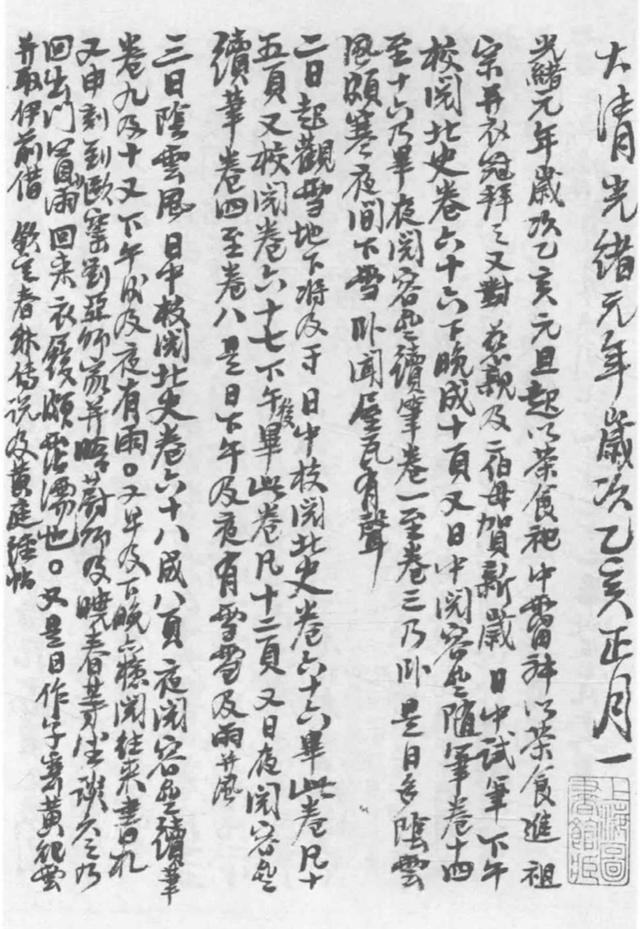 大清光緒元年歲次乙亥正月一
光緒元年歲次乙亥元旦起以茶食祀中霤神以茶食進 祖
宗并衣冠拜之又對 慈親及二伯母賀新歲 日中試筆下午
校閱北史卷六十六下晚成十頁又日中閱容齋隨筆卷十四
至十六乃畢夜閱容齋續筆卷一至卷三乃卧是日多陰雲
風頗寒夜間下雪卧聞屋瓦有聲
二日起觀雪地下將及寸 日中校閱北史卷六十六畢此卷凡十
五頁又校閱卷六十七下午後畢此卷凡十二頁又日夜閱容齋
續筆卷四至卷八是日下午及夜有雪雪及雨并風
三日陰雲風 日中校閱北史卷六十八成八頁夜閱容齋續筆
卷九及十又下午風及夜有雨。又早及下晚之樣閱往來書札
又申刻到歐窰劉亞師家并晤蔚師及曉春等坐談久之乃
回出門冒雨回来衣履頗霑濡也。又是日作字寄黃
并取伊前借 欽定春秋傳說及黃庭經帖
上海圖書館藏